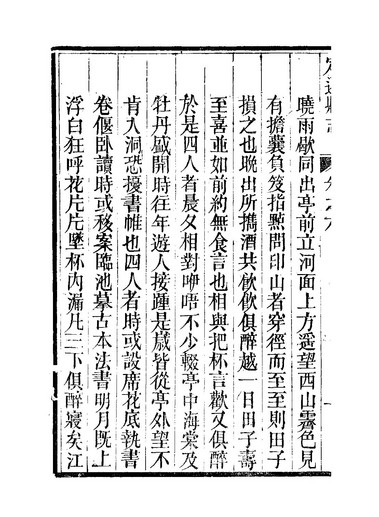 曉雨歇同出亭前立河面上方遥望西山霽色見
有擔囊負笈指㸃問印山者穿徑而至至則田子
損之也晩出所攜酒共飲飲俱醉越一日田子壽
至喜並如前約無食言也相與把杯言歡又俱醉
於是四人者晨夕相對咿唔不少輟亭中海棠及
牡丹盛開時往年遊人接踵是歲皆從亭外望不
肯入洞恐擾書帷也四人者時或設席花底執書
卷偃臥讀時或移案臨池摹古本法書明月既上
浮白狂呼花片片墜杯内漏凡三下俱醉寢矣江